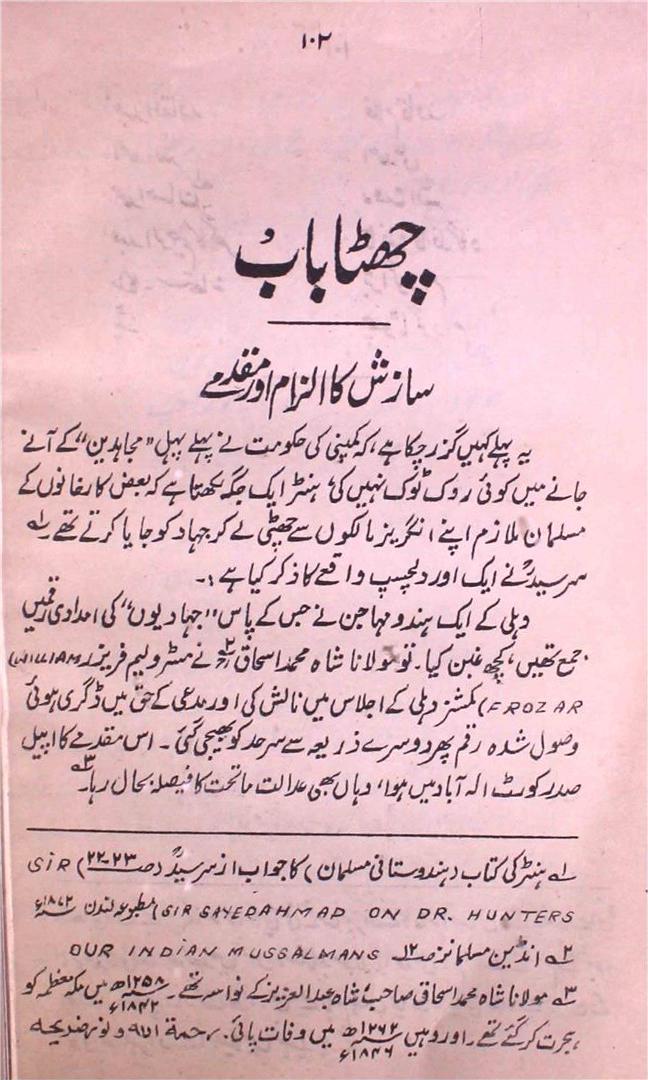 ۱۰۲
چھٹا باب
سازش کا الزام اور مقدمے
یہ پہلے کہیں گزر چکا ہے، کہ کمپنی کی حکومت نے پہلے پہل "مجاہدین" کے آنے
جانے میں کوئی روک ٹوک نہیں کی، ہنٹر ایک جگہ لکھتا ہے کہ بعض کارخانوں کے
مسلمان ملازم اپنے انگریز مالکوں سے چھٹی لے کر جہاد کو جایا کرتے تھے ۱؎
سرسیدؒ نے ایک اور دلچسپ واقعے کا ذکر کیا ہے :۔
دہلی کے ایک ہندو مہاجن نے جس کے پاس "جہادیوں" کی امدادی رقمیں
جمع تھیں، کچھ غبن کیا۔ تو مولانا شاہ محمد اسحاقؒ ۲؎ نے مسٹر ولیم فریزر (WILLIAM
FROZAR) کمشنر دہلی کے اجلاس میں نالش کی اور مدعی کے حق میں ڈگری ہوئی
وصول شدہ رقم پھر دوسرے ذریعہ سے سرحد کو بھیجی گئی۔ اس مقدمے کا اپیل
صدر کورٹ الہ آباد میں ہوا، وہاں بھی عدالت ماتحت کا فیصلہ بحال رہا۔ ۳؎
۱؎ ہنٹر کی کتاب (ہندوستانی مسلمان) کا جواب از سرسیدؒ (صـ ۲۳-۲۲) SIR
(SIR SAYEDAHMAD ON DR. HUNTERS مطبوعہ لندن ۱۸۷۲ء
۲؎ انڈین مسلمانز صـ ۱۲ OUR INDIAN MUSSALMANS
۳؎ مولانا شاہ محمد اسحاق صاحبؒ شاہ عبدالعزیز کے نواسہ تھے۔ ۱۲۵۸ھ ۱۸۴۲ء میں مکہ معظمہ کو
ہجرت کر گئے تھے۔ اور وہیں ۱۲۶۲ھ ۱۸۴۶ء میں وفات پائی۔ رحمۃ اللہ و نور ضریحہ